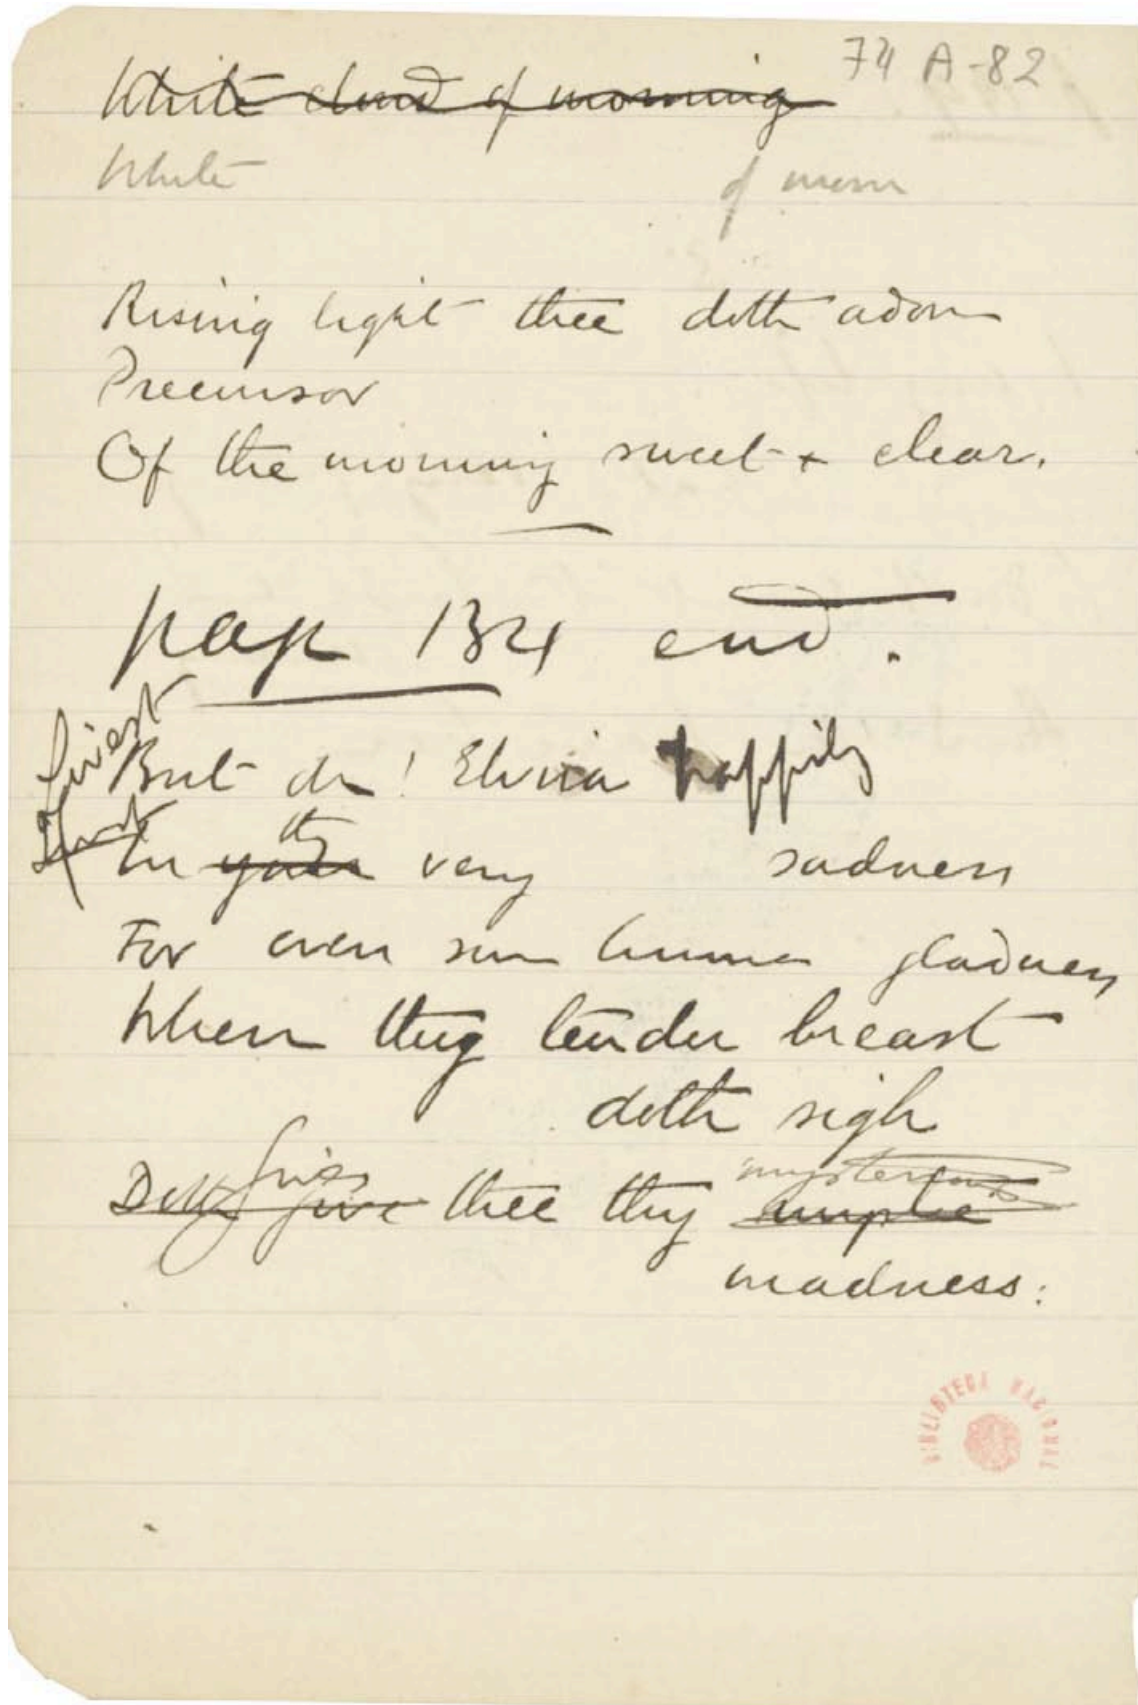 74 A-82
White cloud of morning
White of morn
Rising light thee doth adorn
Precursor
Of the morning sweet + clear.
pag 134 end.
Livest
But oh! Elvira happily
In your thy very sadness
For even human gladness
When thy tender breast
doth sigh
Doth give thee thy mysterious
madness.
BIBLIOTECA NACIONAL